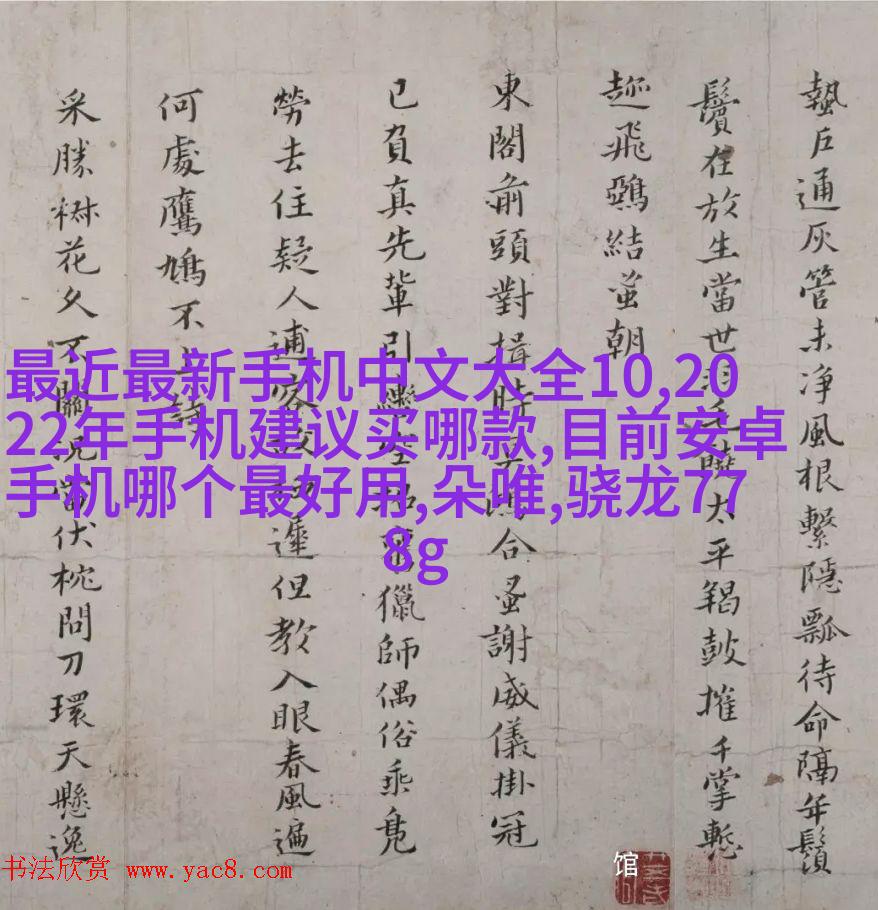 蟄戶通灰管未净風根繫隱瓢待命隔年鬚
鬢在放生當世羽毛太平羯鼓摧千掌慙
趂飛鵶結朝
東閣前頭對揖時合蚤謝威儀掛冠
已負真先輩引獵師偶俗乘凫
勞去住疑人逋客遲但教入眼春風遍
何處鷹鳩不
采勝樹花久不關況當伏枕問刀環天懸逸
最近最新手机中文大全10,20
22年手机建议买哪款,目前安卓
手机哪个最好用,朵唯,骁龙77
8g
馆
书法欣赏 www.yac8.com